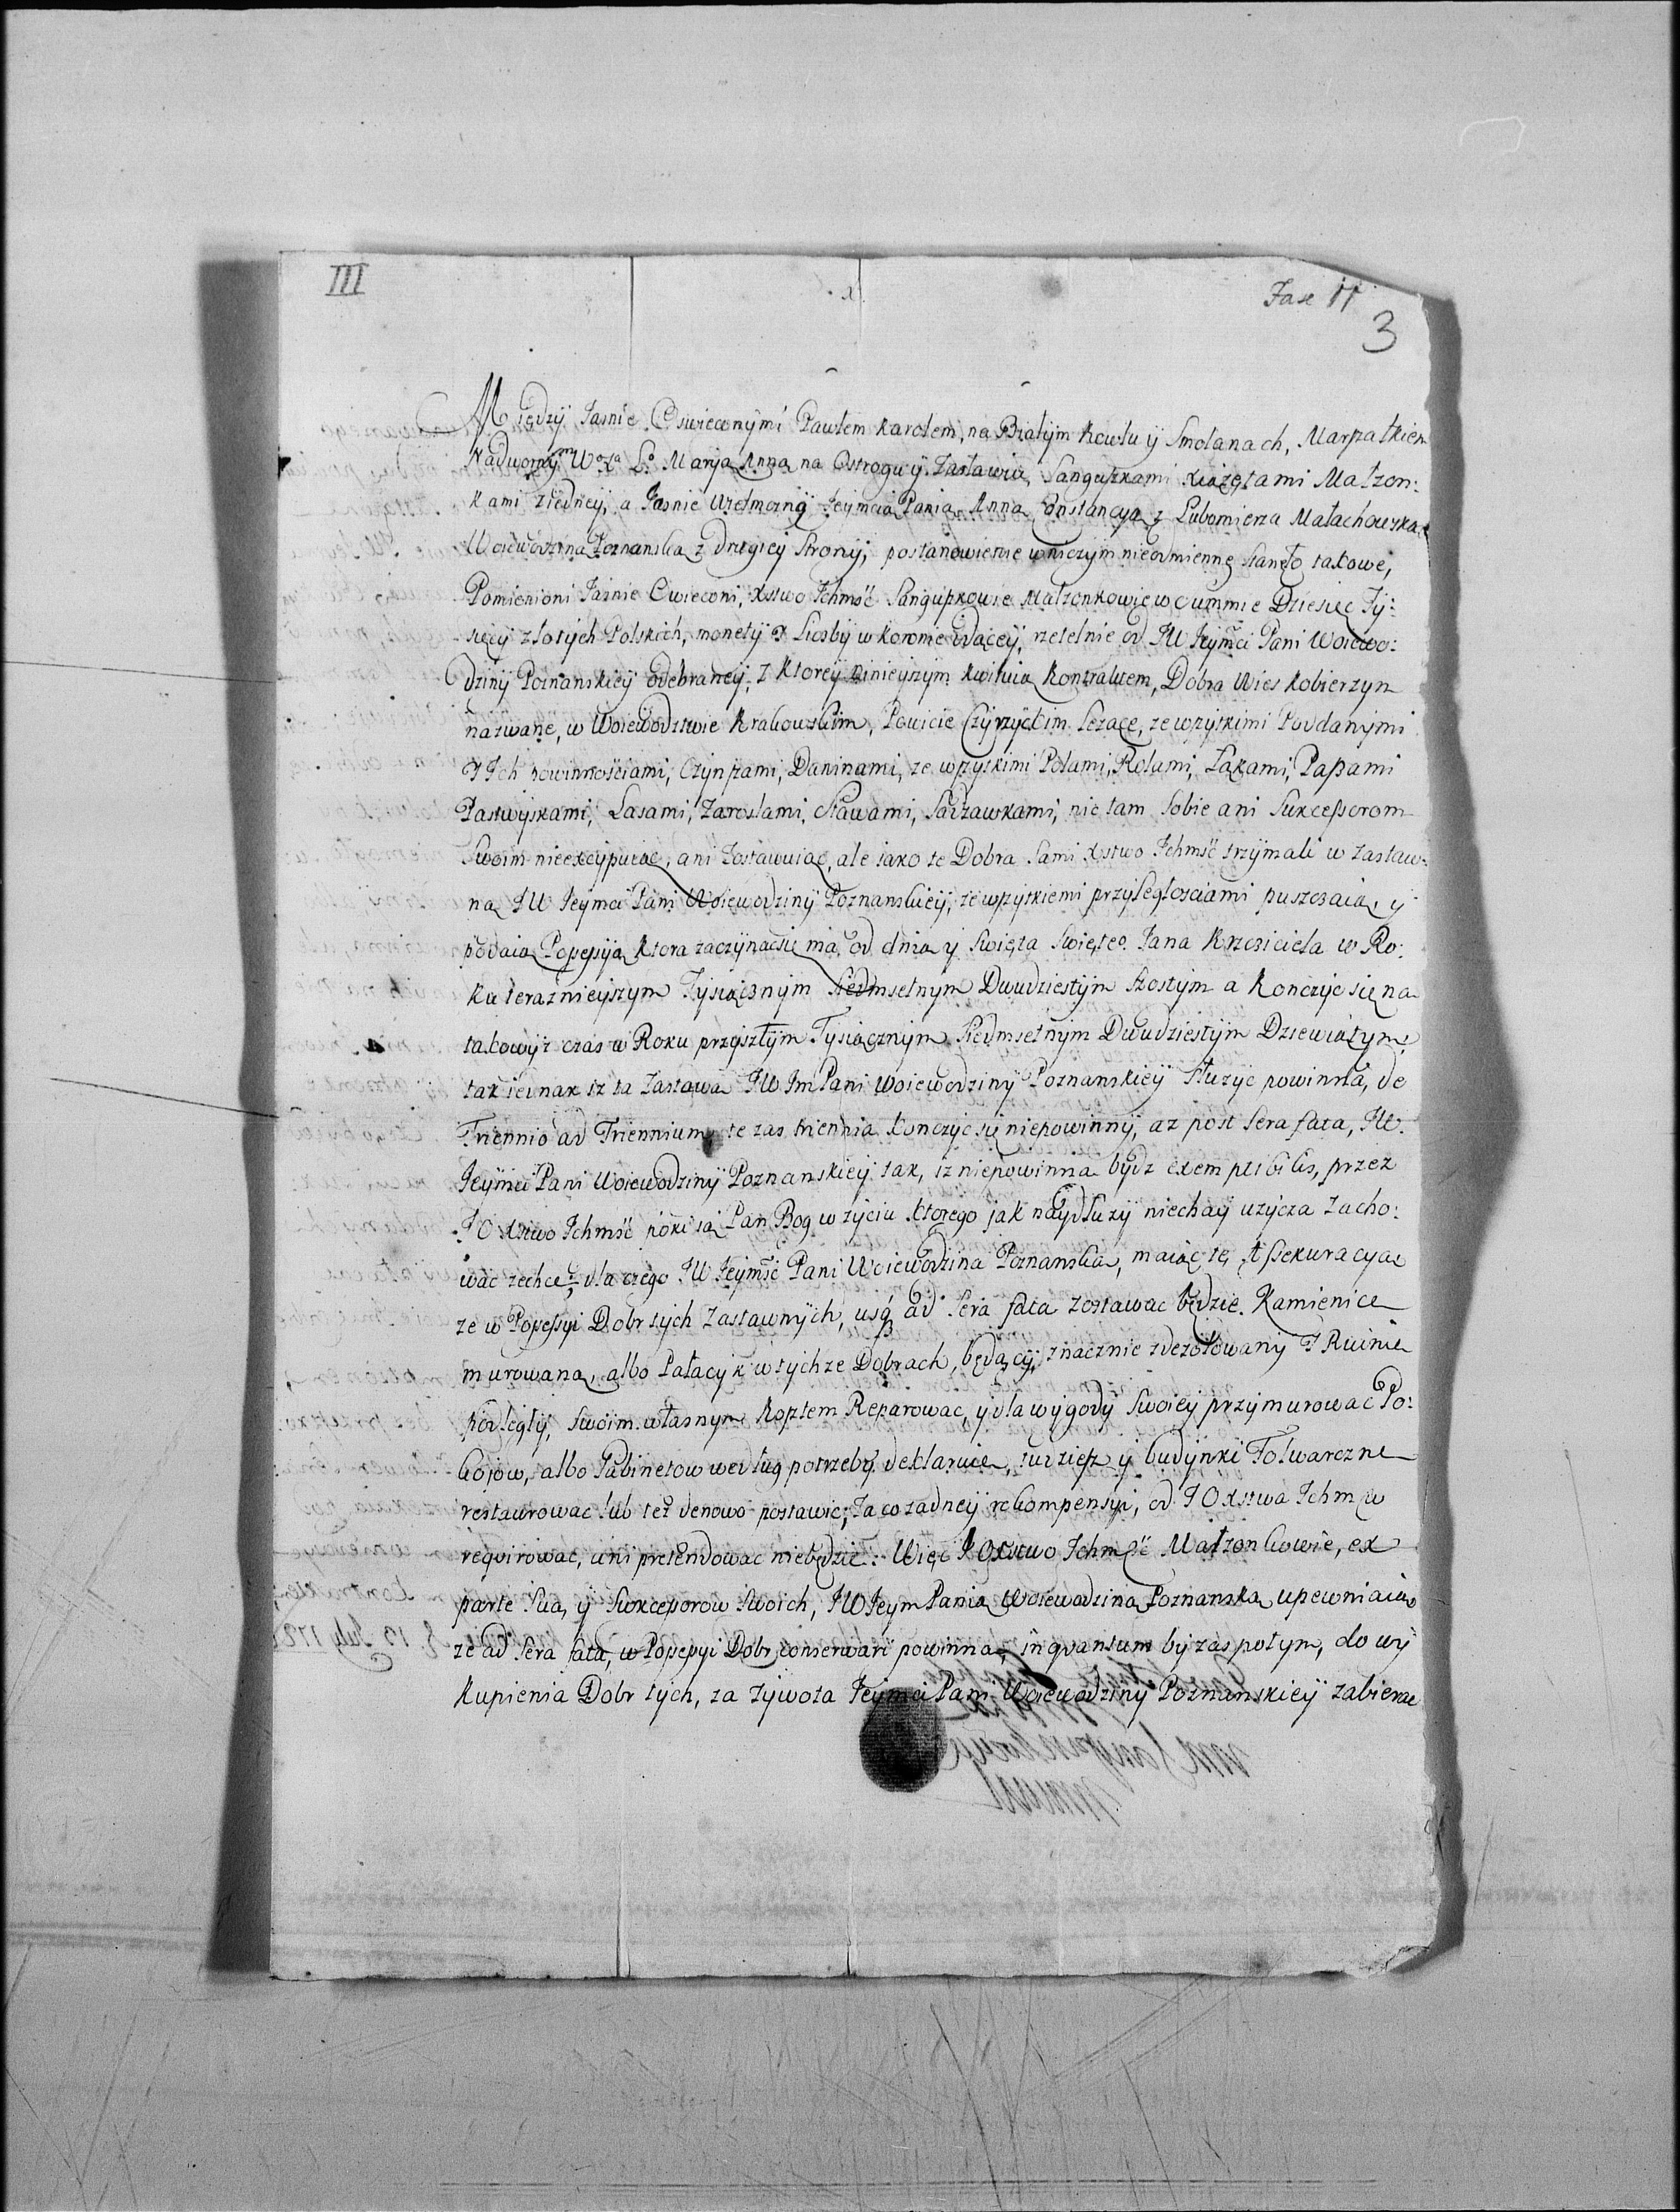 III
Fasc II
3
Między Jasnie Oswieconymi Pawłem Karolem, na Białym Kowlu ÿ Smolanach, Marszałkiem
Nadwornym W° Xa Lo Marya Anna na Ostrogu ÿ Zasławiu, Sanguszkami Xiązętami Małzon:
kami z iedneÿ, a Jasnie Wielmozną Jeymcią Panią Anną Constancyą z Lubomierza Małachowską
Woiewodziną Poznanską z drugiey Strony, postanowienie w niczym nieodmienne stanęło takowe,
Pomienioni Jasnie Oswieconi, Xstwo Ichmść Sanguszkowie Małzonkowie w Summie Dziesięc Ty:
sięcy złotych Polskich, monety y Liczby w koronie idącey, rzetelnie od JW Jeymci Pani Woiewo:
dziny Poznanskiey odebraney, z ktorey ninieyszym kwituią kontraktem, Dobra Wies Kobierzyn
nazwane, w Woiewodztwie Krakowskim, Powicie Szczyrzyckim lezące, ze wszyskimi Poddanymi
y Ich powinnościami, Czynszami, Daninami, ze wszyskimi Polami, Rolami, Łąkami, Paszami
Pastwiskami, Lasami, Zaroslami, Stawami, Sadzawkami, nic tam sobie ani Sukcessorom
Swoim nieexcypuiąc, ani zostawuiąc, ale iako te Dobra sami Xstwo Ichmść trzymali w zastaw:
ną JW Jeymci Pani Woiewodziny Poznanskiey, ze wszyskiemi przyległosciami puszczaią, y
podaią Possessyą ktora zaczynac się ma od dnia y Swięta Swięteo Jana Krzciciela w Ro:
ku teraznieyszym Tysiącznym Siedmsetnym Dwudziestym Szostym a konczyc się na
takowyz czas w Roku przyszłym Tysiącznym Siedmsetnym Dwudziestym Dziewiątym,
tak iednak iz ta Zastawa JW Im Pani Woiewodziny Poznanskiey słuzyc powinna, de
Triennio ad Triennium, te zas triennia konczyc się niepowinny, az post sera fata, JW.
Jeymci Pani Woiewodziny Poznanskiey tak, iz niepowinna bydz exemplibilis, przez
JO Xstwo Ichmść poki ią Pan Bog w zyciu ktorego jak naydłuzy niechay uzycza zacho:
wac zechce, dla czego JW Jeymść Pani Woiewodzina Poznanska, maiąc tę Assekuracyą
ze w Possessyi Dobr tych Zastawnych, usq ad sera fata zostawac będzie. Kamienice
murowaną, albo Pałacyk w tychze Dobrach, będący, znacznie zdezolowany y Ruinie
podległy, swoim własnym kosztem Reparowac, y dla wygody swoiey przymurowac Po:
koiow, albo Gabinetow według potrzeby deklaruie, tudziesz y budynki Folwarczne
restaurowac lub tez denowo postawic, za co zadney rekompensyi, od JO Xstwa Ichmw
reqvirowac, ani pretendowac niebędzie: Więc JO Xstwo Ichmść Małzonkowie, ex
parte sua, y Sukcessorow swoich, JW Jeym Panią Woiewodzinę Poznanską upewniaią
ze ad sera fata, w Possessyi Dobr conservari powinna, inqvantum by zas potym, do wy
kupienia Dobr tych, za zywota Jeymci Pani Woiewodziny Poznanskiey zabierac